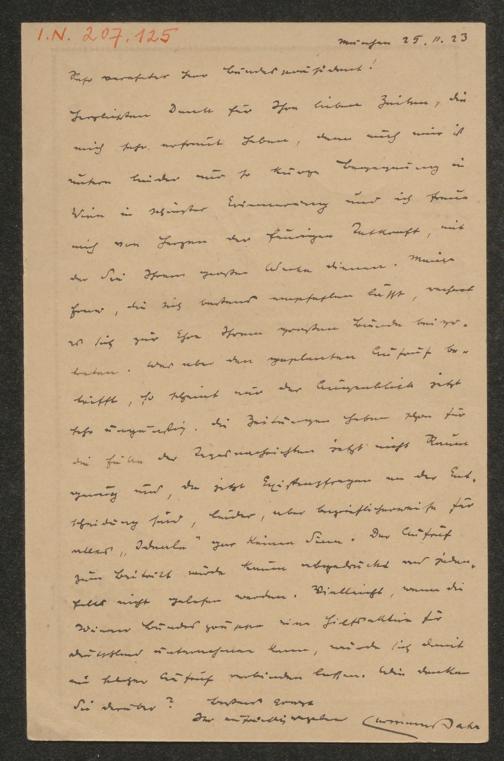 I.N. 207.125
München 25.11.23
Sehr verehrter Herr Bundespräsident!
Herzlichsten Dank für Ihre lieben Zeilen, die
mich sehr erfreut haben, denn auch mir ist
unsere leider nur so kurze Begegnung in
Wien in schönster Erinnerung und ich freue
mich von Herzen der feurigen Tatkraft, mit
der Sie Ihrem grossen Werke dienen. Meine
Frau, die sich bestens empfehlen lässt, rechnet
es sich zur Ehre Ihrem grossen Bunde beizu-
treten. Was aber den geplanten Aufruf be-
trifft, so scheint mir der Augenblick jetzt
sehr ungünstig. Die Zeitungen haben schon für
die Fülle der Tagesnachrichten jetzt nicht Raum
genug und, da jetzt Existenzfragen an der Ent-
scheidung sind, leider, aber begreiflicherweise für
alles "Ideale" gar keinen Sinn. Der Aufruf
zum Beitritt würde kaum abgedruckt und jeden-
falls nicht gelesen werden. Vielleicht, wenn die
Wiener Bundesgruppe eine Hilfsaktion für
Deutschland unternehmen kann, würde sich damit
ein solcher Aufruf verbinden lassen. Wie denken
Sie darüber? Bestens grüsst
Ihr aufrichtig ergebener Hermann Bahr